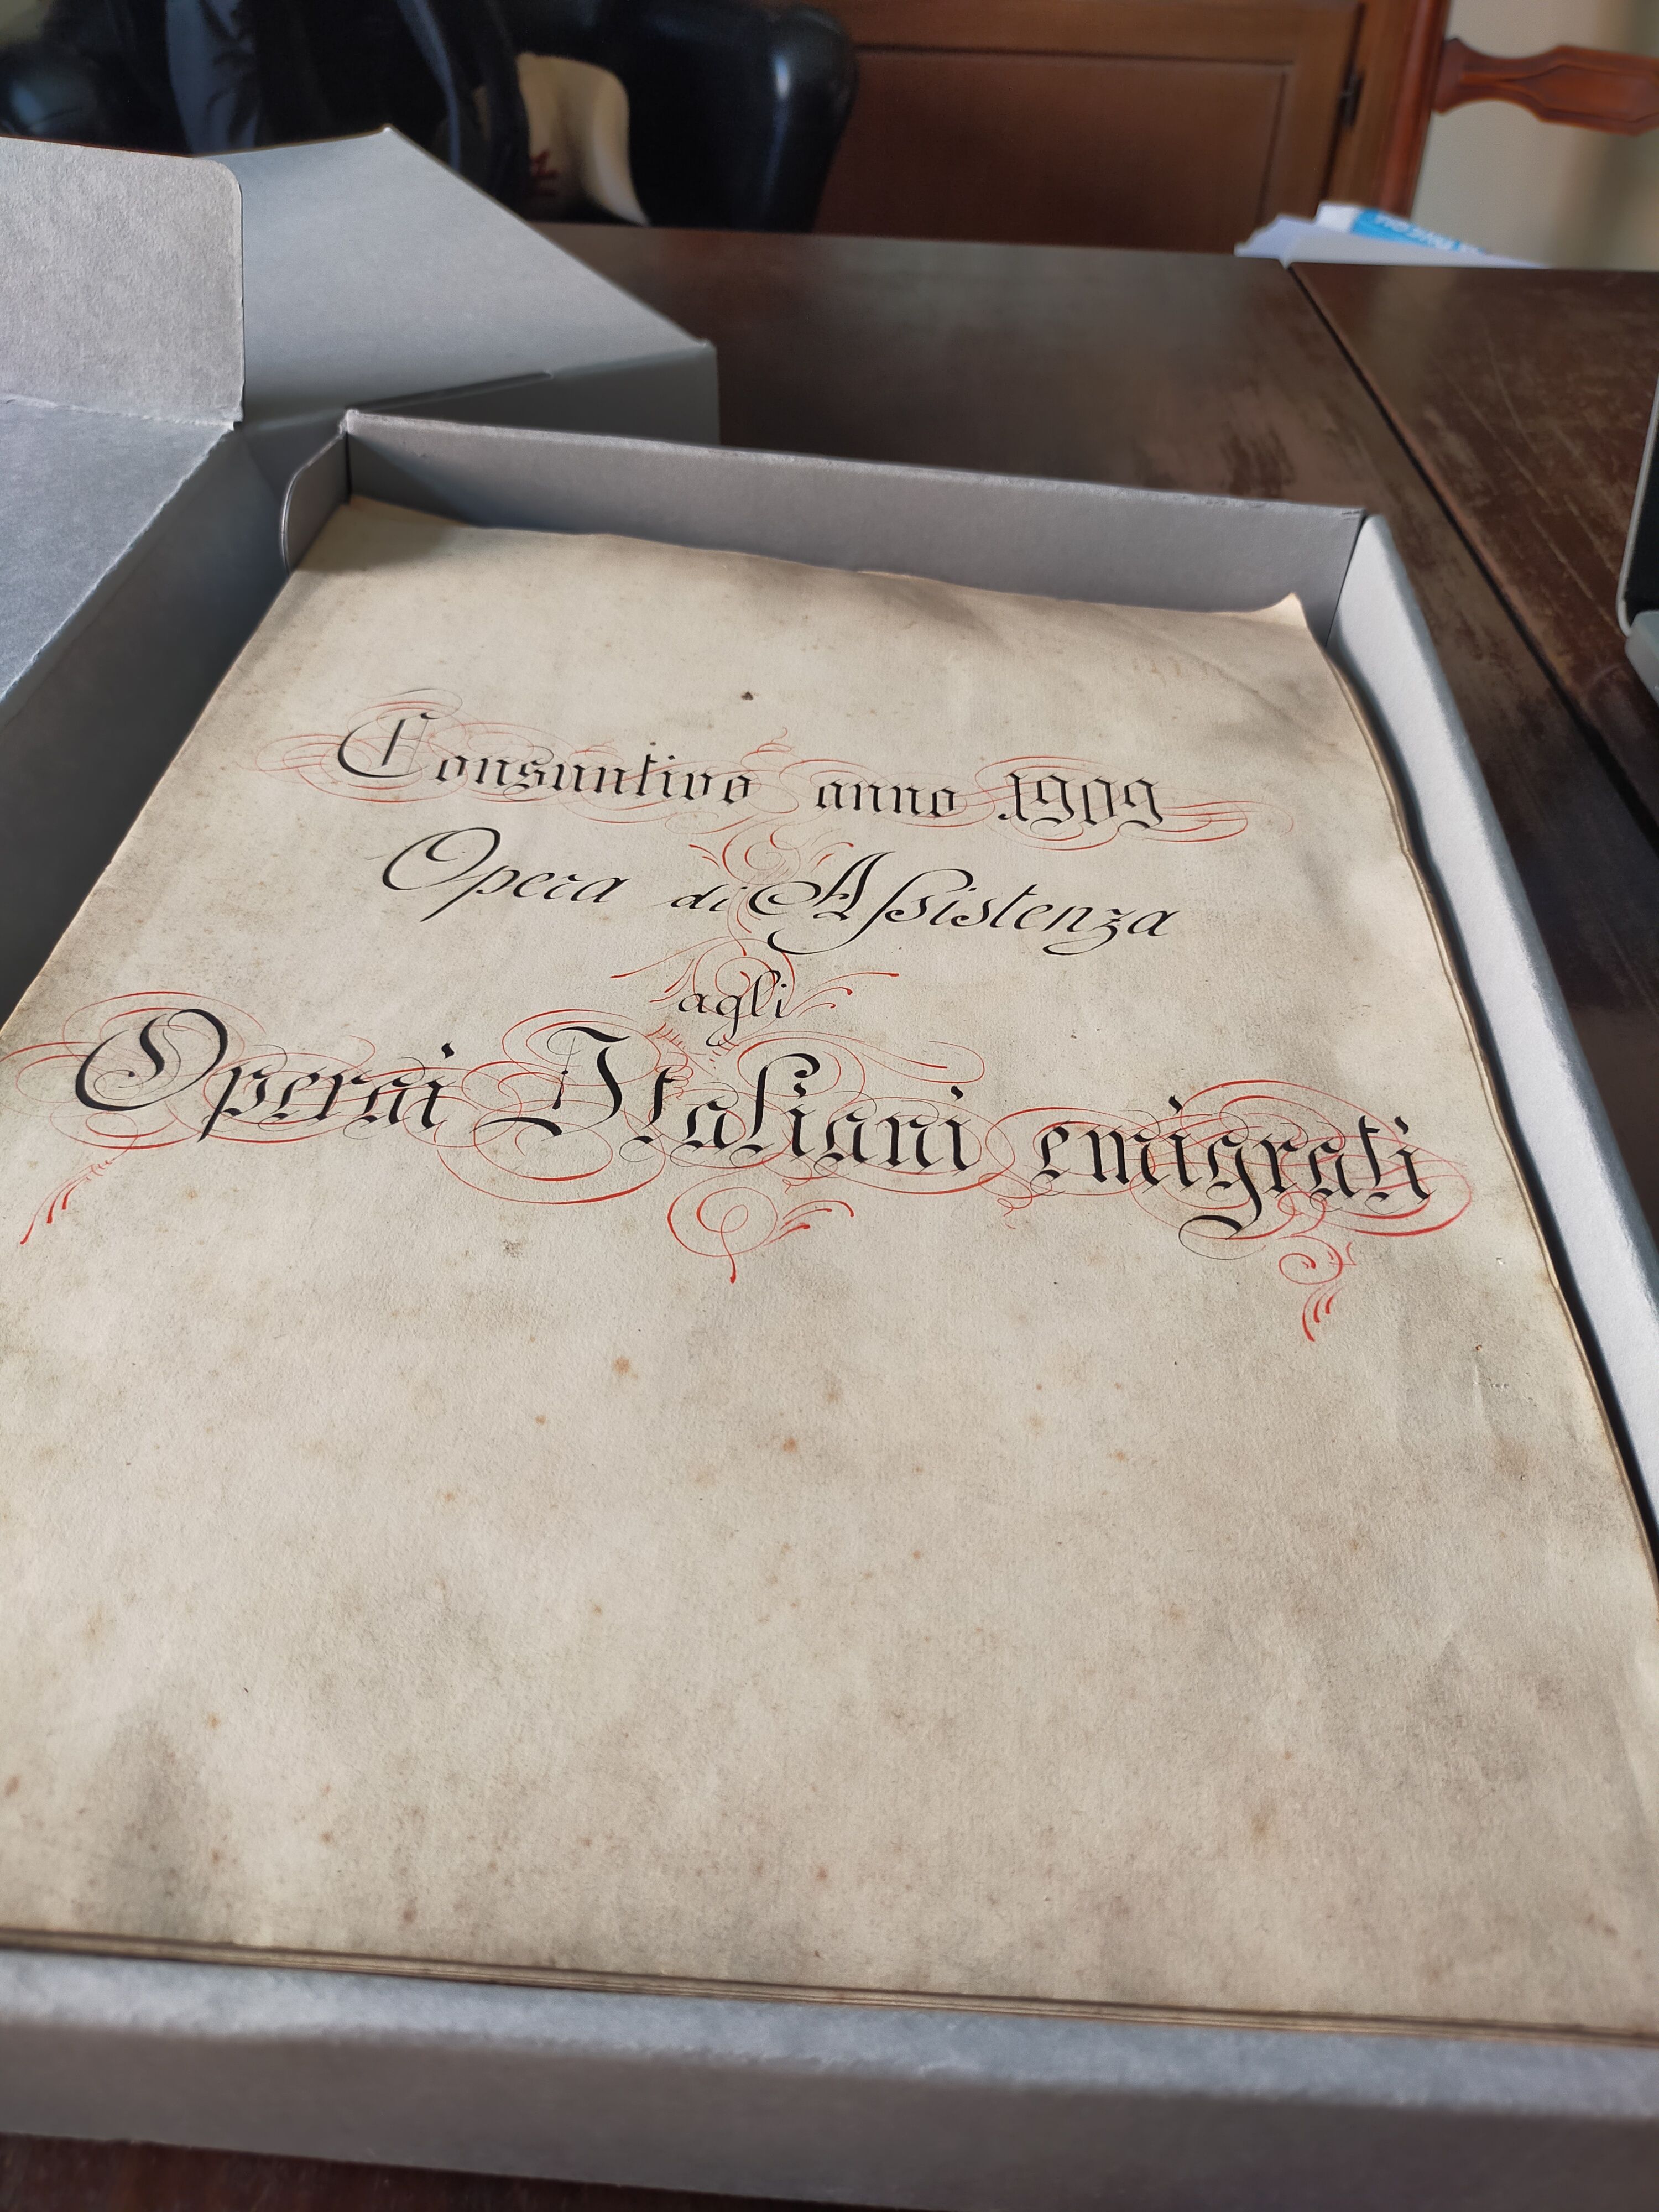 Consuntivo anno 1909
Opera di Assistenza
agli
Operai Italiani emigrati